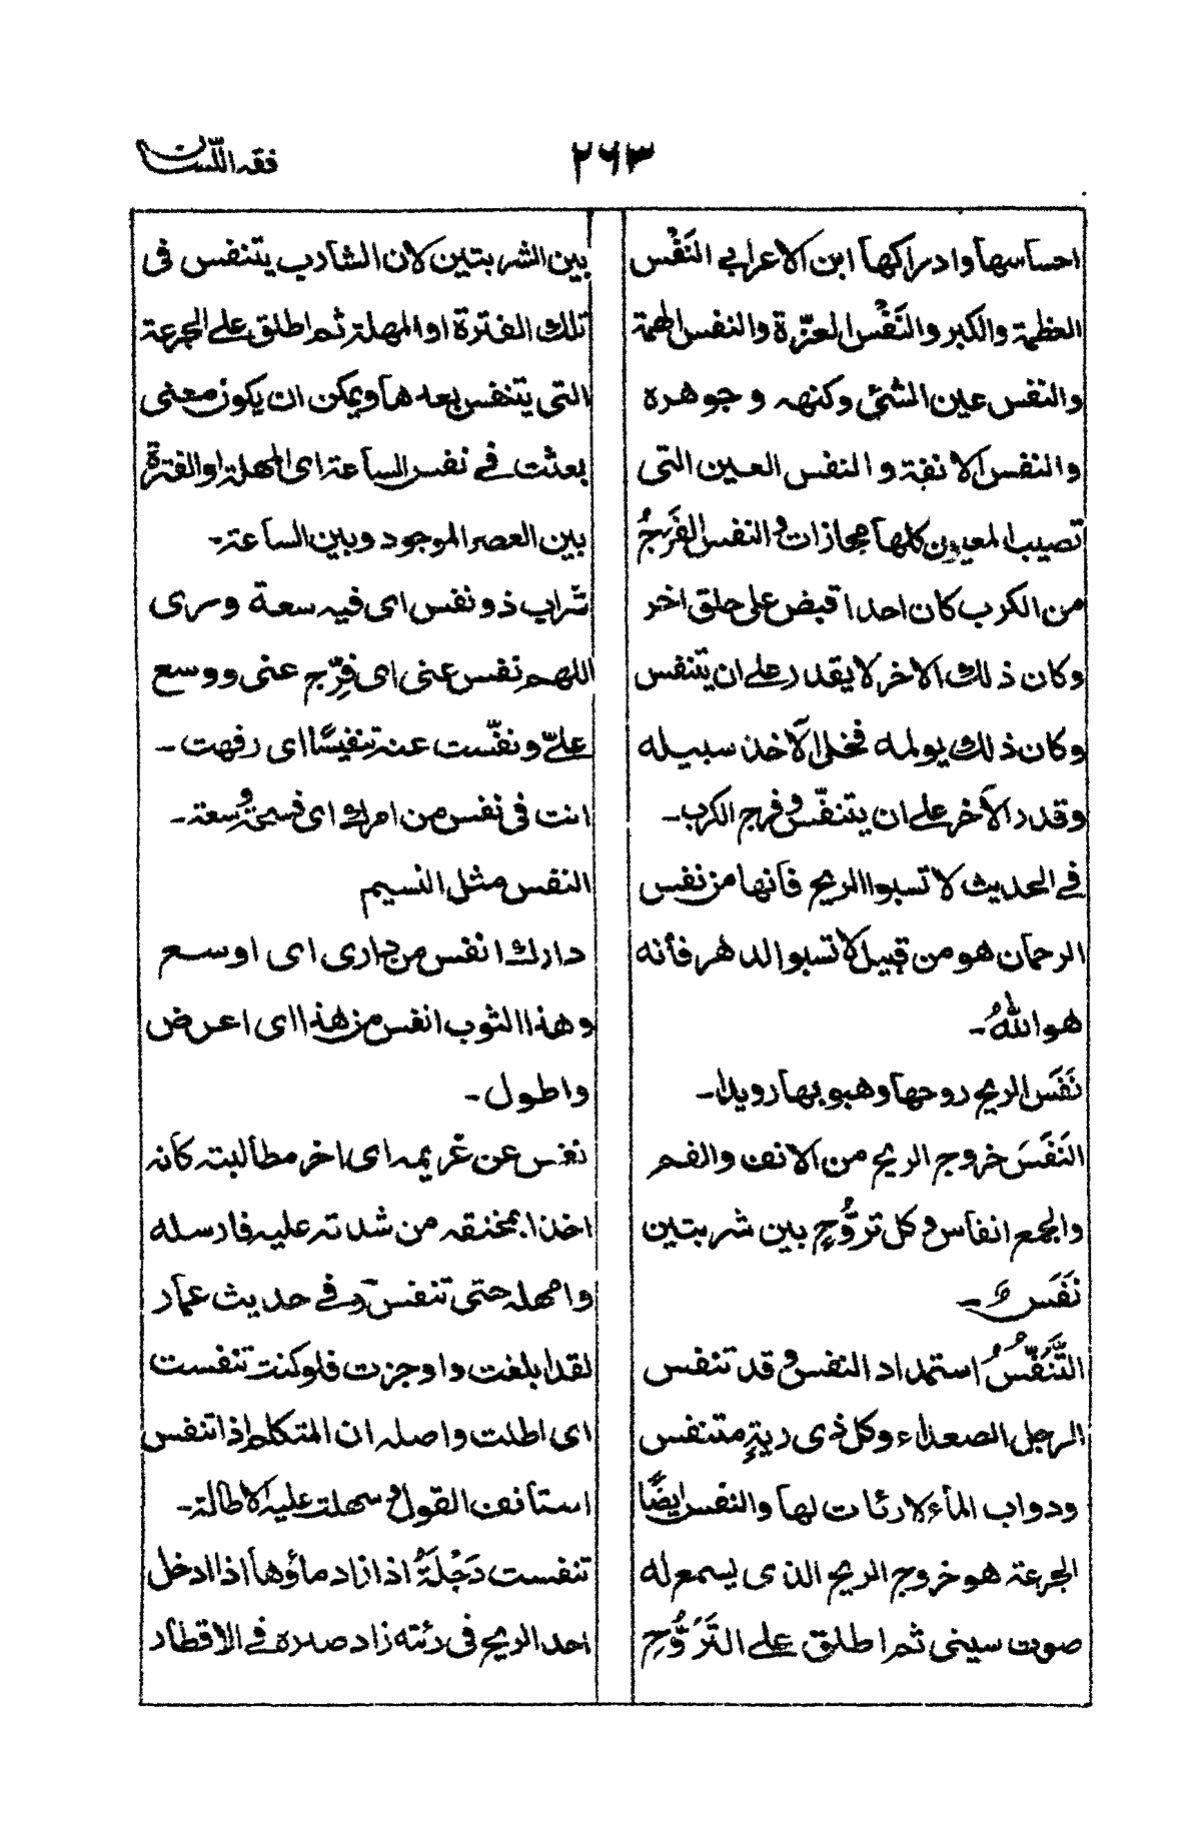 فقه اللسان
٢٦٣
احساسها وادراكها ابن الاعرابي النَفْس
العظمة والكبر والنَفْس العزّة والنفس الهمة
والنفس عين الشئي وكنهه وجوهره
والنفس الانفة والنفس العين التى
تصيب المعيون كلها مجازات والنفس الفَرَجُ
من الكرب كان احدا قبض على حلق اخر
وكان ذلك الاخر لا يقدر على ان يتنفس
وكان ذلك يولمه فخلى الآخذ سبيله
وقدر الآخر على ان يتنفّس وفرج الكرب۔
فى الحديث لا تسبوا الريح فأنها من نفس
الرحمان هو من قبيل لا تسبوا الدهر فأنه
هو اللهُ۔
نَفَس الريح روحها وهبوبها رويدا۔
النَفَسَ خروج الريح من الانف والفم
والجمع انفاس وكل تروُّحٍ بين شربتين
نَفَس۔
التَّنَفّسُ استمداد النفس وقد تنفس
الرجل الصعداء وكل ذى ريةٍ متنفس
ودواب الماء لا رئات لها والنفس ايضًا
الجرعة هو خروج الريح الذى يسمع له
صوت سينى ثم اطلق على التَرَوُّحِ
بين الشربتين لان الشارب يتنفس فى
تلك الفترة او المهلة ثم اطلق على الجرعة
التى يتنفس بعدها ويمكن ان يكون معنى
بعثت فى نفس الساعة اى المهلة او الفترة
بين العصر الموجود وبين الساعة۔
شراب ذو نفس اى فيه سعة ورى
اللهم نفس عنى اى فرِّج عنى ووسع
علىّ ونفّست عنه تنفيسًا اى رفهت۔
انت فى نفس من امرك اى فسحة وسعة۔
النفس مثل النسيم
دارك انفس من دارى اى اوسع
وهذا الثوب انفس من هذا اى اعرض
واطول۔
نفس عن غريمه اى اخر مطالبته كانه
اخذ بمخنقه من شدته عليه فارسله
وامهله حتى تنفس وفى حديث عمار
لقد ابلغت واوجزت فلو كنت تنفست
اى اطلت واصله ان المتكلم اذا تنفس
استأنف القول وسهلت عليه الاطالة۔
تنفست دَجْلَةُ اذا زاد ماؤها اذا ادخل
احد الريح فى رئته زاد صدره فى الاقطار